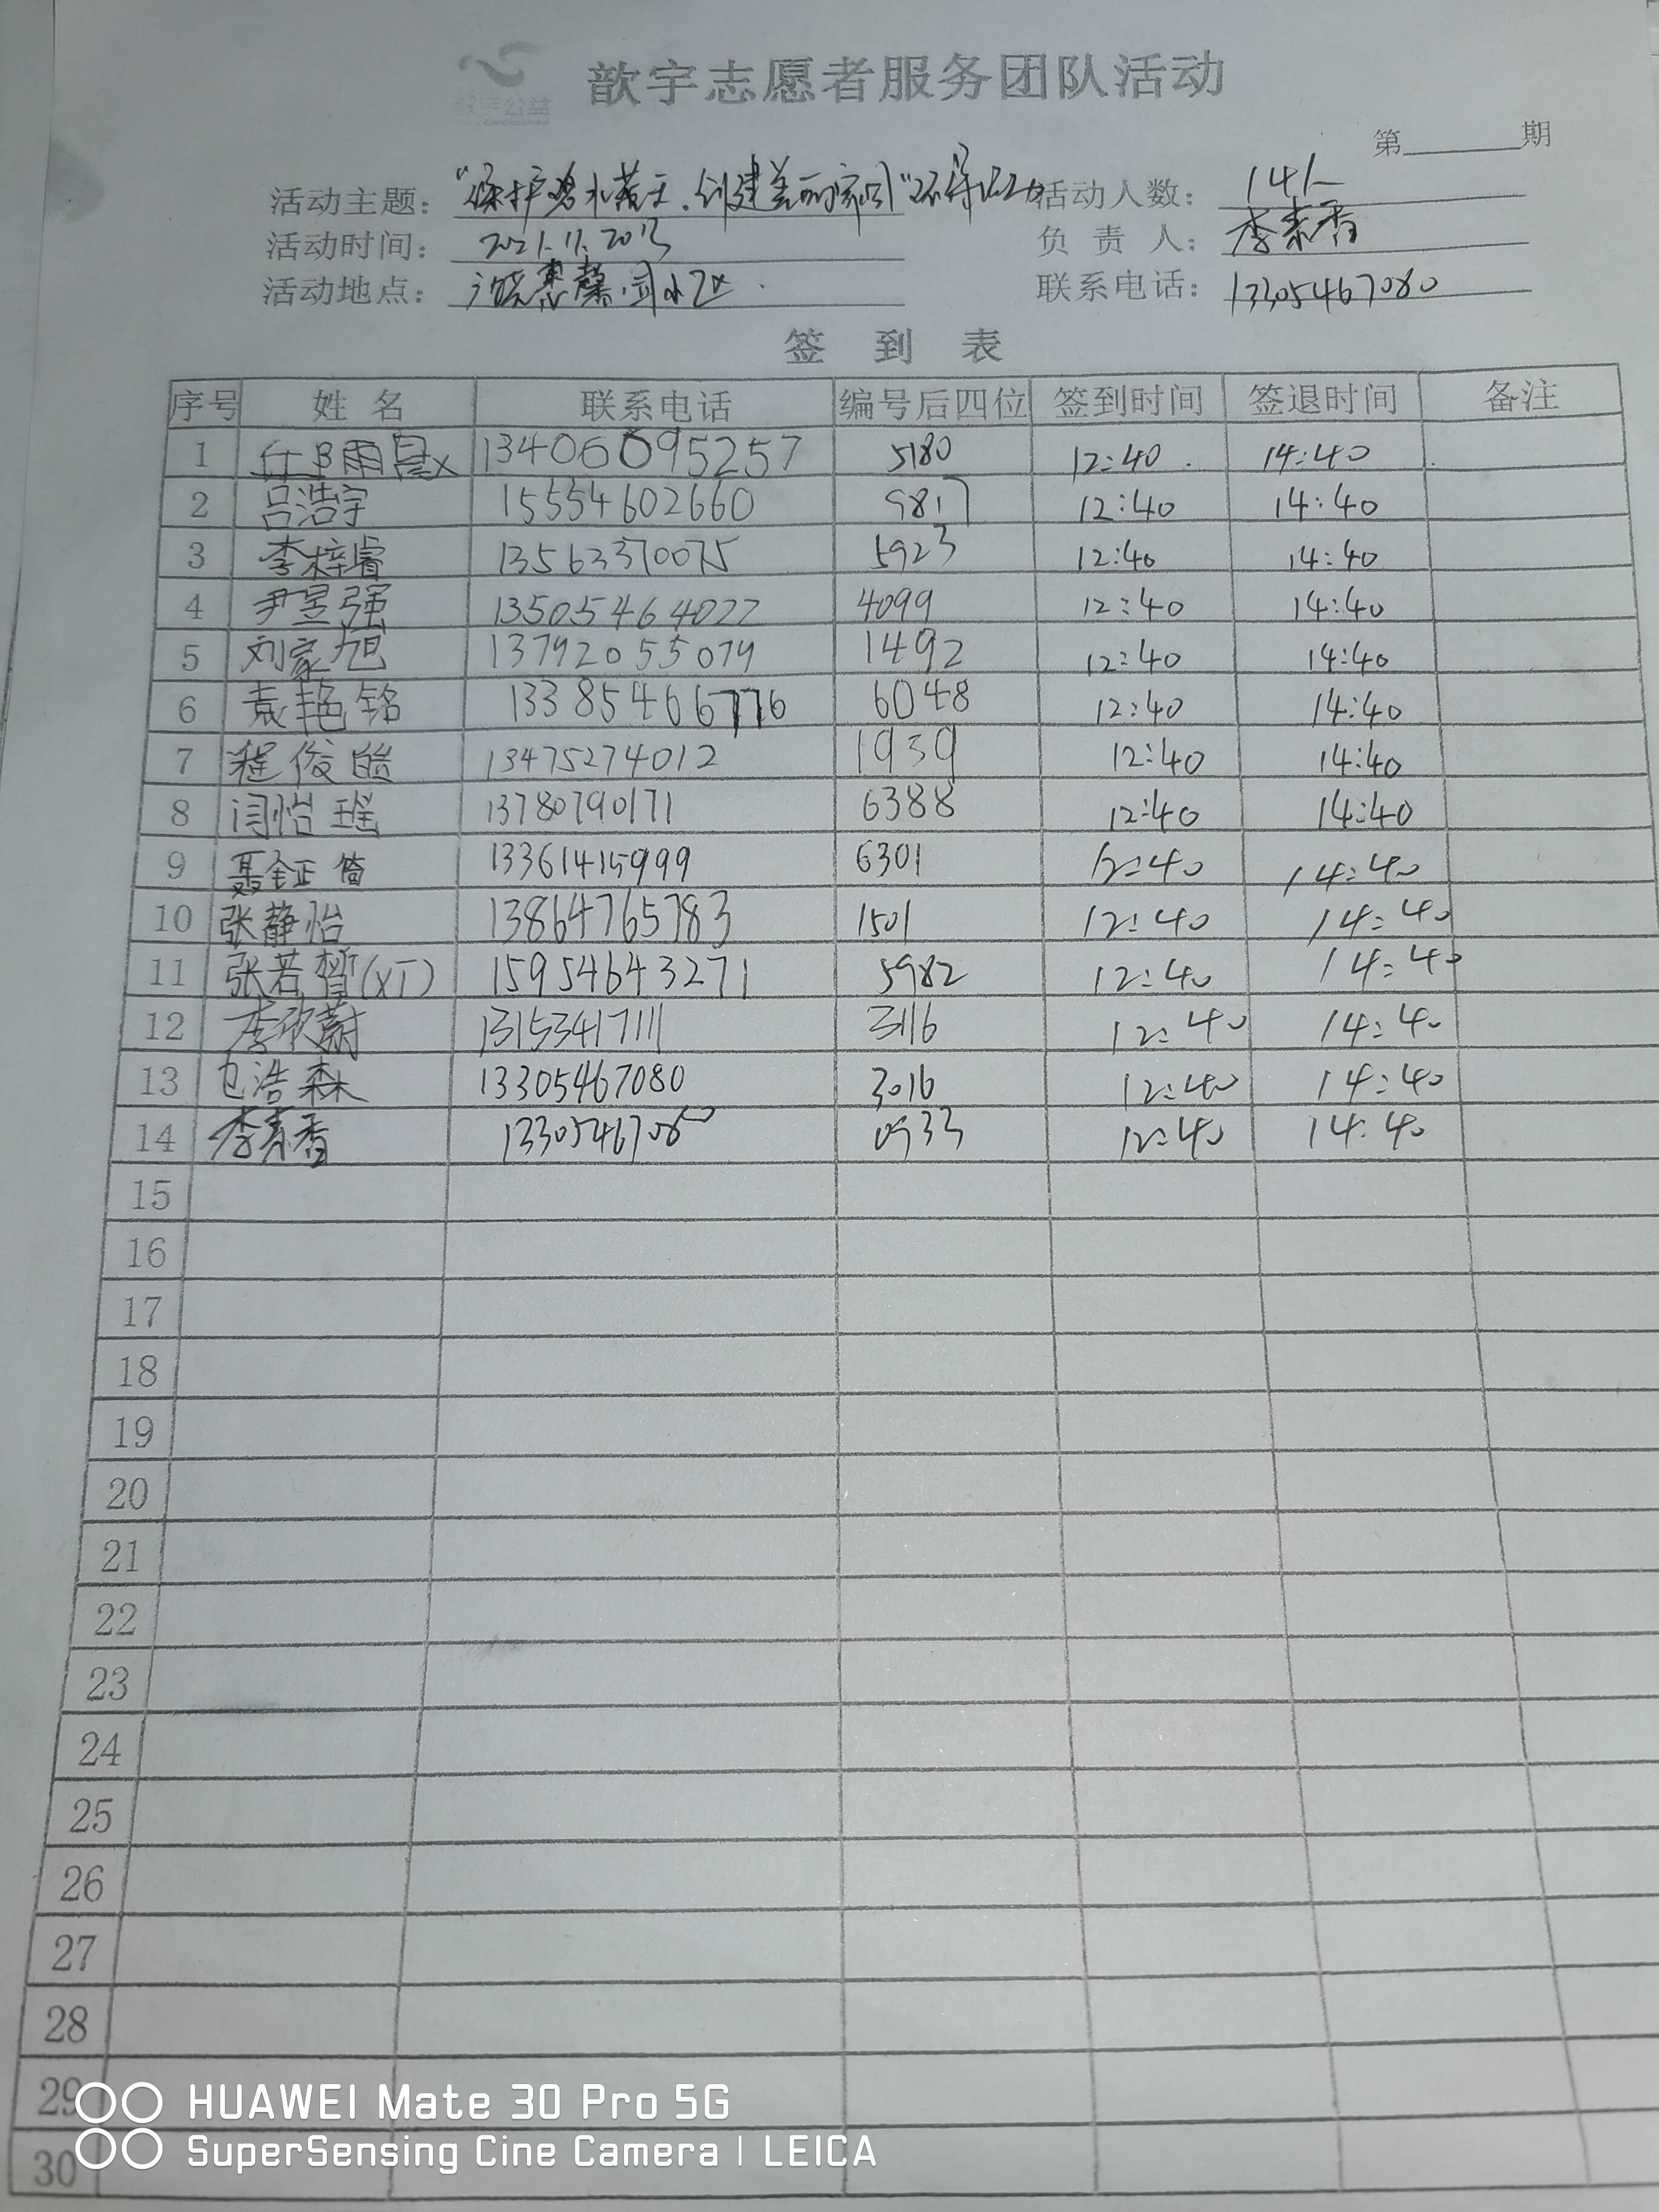 歆宇公益
歆宇志愿者服务团队活动
第 期
活动主题： "保护碧水蓝天，创建美丽家园"环保活动 活动人数： 14人
活动时间： 2021.11.20日 负责人： 李素香
活动地点： 惠馨园小区. 联系电话： 13305467080
签到表
序号 姓名 联系电话 编号后四位 签到时间 签退时间 备注
1 134060095257 5180 12:40 14:40
2 吕浩宇 15554602660 9817 12:40 14:40
3 李梓睿 13563370075 5923 12:40 14:40
4 尹昱强 13505464022 4099 12:40 14:40
5 刘家旭 13792055079 1492 12:40 14:40
6 袁艳铭 13385466776 6048 12:40 14:40
7 程俊皓 13475274012 1939 12:40 14:40
8 闫怡瑶 13780790171 6388 12:40 14:40
9 聂钲倚 13361415999 6301 12:40 14:40
10 张静怡 13864765783 1501 12:40 14:40
11 张若皙(XT) 15954643271 5982 12:40 14:40
12 李欣蔚 13153417111 3116 12:40 14:40
13 浩森 13305467080 3016 12:40 14:40
14 李素香 13305467080 0933 12:40 14:40
15
16
17
18
19
20
21
22
23
24
25
26
27
28
29
30
HUAWEI Mate 30 Pro 5G
SuperSensing Cine Camera | LEICA